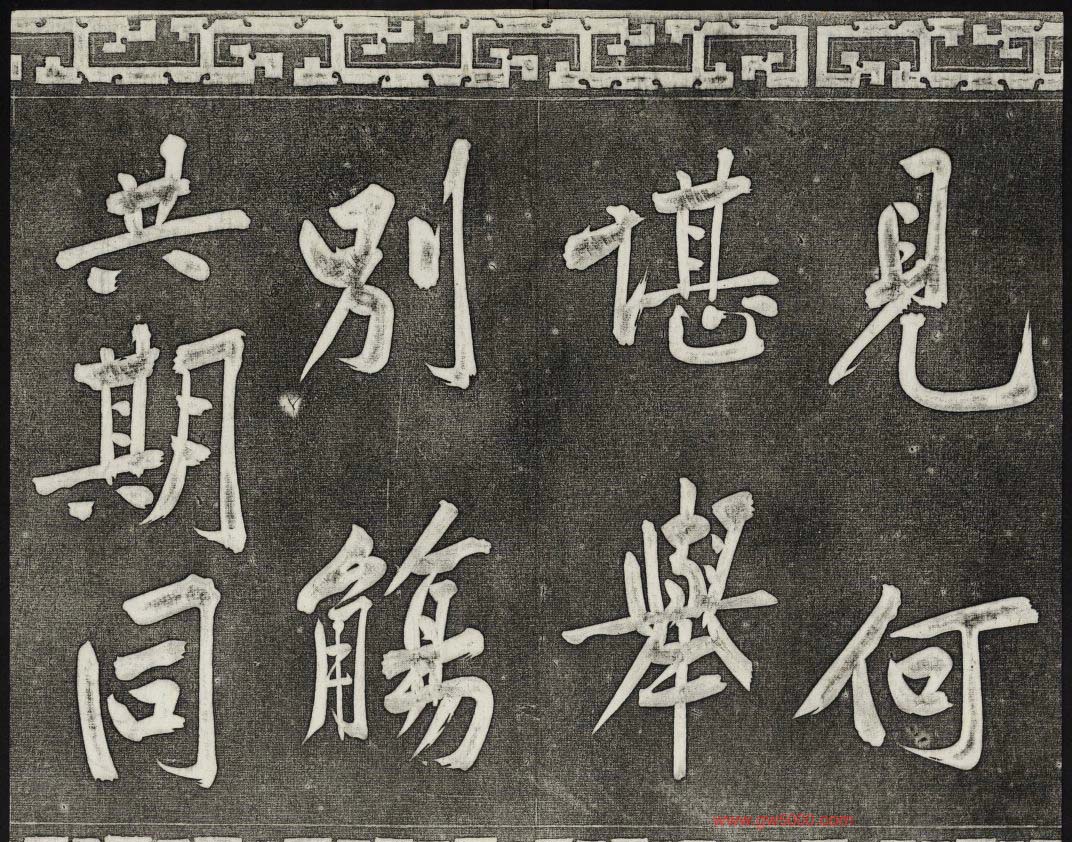 見何
堪舉
別觴
共期同
www.gwl5000.com